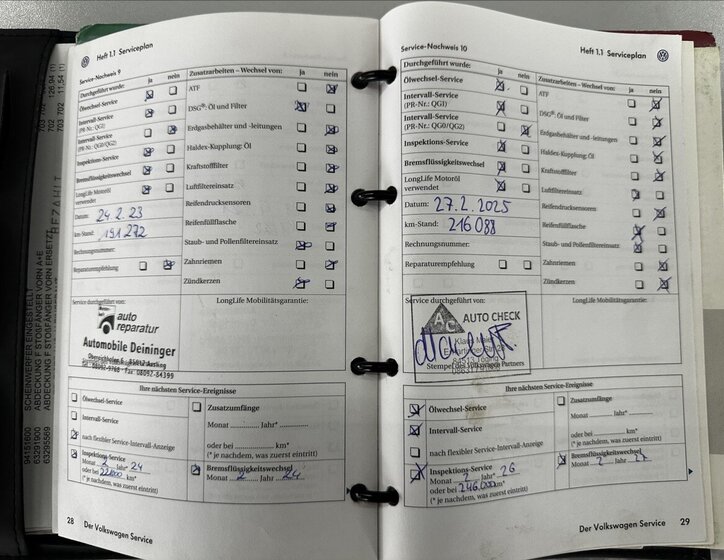 Heft 1.1 Serviceplan
Service-Nachweis 9
Durchgeführt wurde: ja nein
Ölwechsel-Service
Intervall-Service
(PR-Nr.: QG1)
Intervall-Service
(PR-Nr.: QG0/QG2)
Inspektions-Service
Bremsflüssigkeitswechsel
LongLife Motoröl
verwendet
Datum: 24.2.23
km-Stand: 191.272
Rechnungsnummer:
Reparaturempfehlung
Zusatzarbeiten – Wechsel von: ja nein
ATF
DSG®: Öl und Filter
Erdgasbehälter und -leitungen
Haldex-Kupplung: Öl
Kraftstofffilter
Luftfiltereinsatz
Reifendrucksensoren
Reifenfüllflasche
Staub- und Pollenfiltereinsatz
Zahnriemen
Zündkerzen
Service durchgeführt von:
LongLife Mobilitätsgarantie:
auto
reparatur
Automobile Deininger
Ihre nächsten Service-Ereignisse
Ölwechsel-Service
Intervall-Service
nach flexibler Service-Intervall-Anzeige
Inspektions-Service
Monat 2 Jahr* 24
oder bei km*
(* je nachdem, was zuerst eintritt)
Zusatzumfänge
Monat Jahr*
oder bei km*
(* je nachdem, was zuerst eintritt)
Bremsflüssigkeitswechsel
Monat 2 Jahr
28 Der Volkswagen Service
94151600 SCHEINWERFER EINGESTELLT
63291900 ABDECKUNG F STOßFÄNGER VORN A+E
63295589 ABDECKUNG F STOßFÄNGER VORN ERSETZT
BEZAHLT
Service-Nachweis 10
Heft 1.1 Serviceplan
Durchgeführt wurde: ja nein
Ölwechsel-Service
Intervall-Service
(PR-Nr.: QG1)
Intervall-Service
(PR-Nr.: QG0/QG2)
Inspektions-Service
Bremsflüssigkeitswechsel
LongLife Motoröl
verwendet
Datum: 27.2.2025
km-Stand: 216088
Rechnungsnummer:
Reparaturempfehlung
Zusatzarbeiten – Wechsel von: ja nein
ATF
DSG®: Öl und Filter
Erdgasbehälter und -leitungen
Haldex-Kupplung: Öl
Kraftstofffilter
Luftfiltereinsatz
Reifendrucksensoren
Reifenfüllflasche
Staub- und Pollenfiltereinsatz
Zahnriemen
Zündkerzen
Service durchgeführt von:
LongLife Mobilitätsgarantie:
AC AUTO CHECK
Stempel des Volkswagen Partners
Ihre nächsten Service-Ereignisse
Ölwechsel-Service
Intervall-Service
nach flexibler Service-Intervall-Anzeige
Inspektions-Service
Monat 2 Jahr* 26
oder bei 246.000 km*
(* je nachdem, was zuerst eintritt)
Zusatzumfänge
Monat Jahr*
oder bei km*
(* je nachdem, was zuerst eintritt)
Bremsflüssigkeitswechsel
Monat 2 Jahr 27
Der Volkswagen Service 29